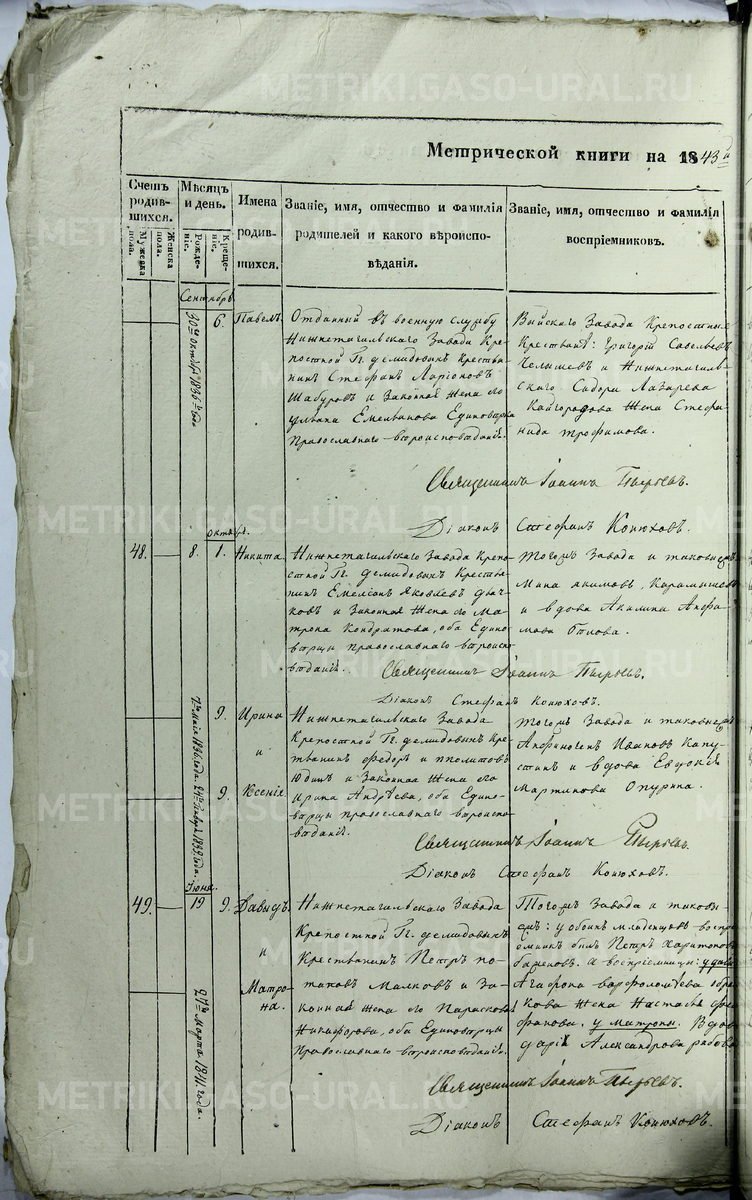 METRIKI.GASO-URAL.RU
Метрической книги на 1843й
Счетъ родив-шихся.
Мужеска пола.
Женска пола.
Мѣсяцъ и день.
Рожде-ніе.
Креще-ніе.
Имена родив-шихся.
Званіе, имя, отчество и фамилія
родителей и какого вѣроиспо-
вѣданія.
Званіе, имя, отчество и фамилія
воспріемниковъ.
Сентябрь
30го октября 1836го года
6.
Павелъ.
Отданный въ военную службу
Нижнетагильскаго Завода Кре-
постной Гг. Демидовыхъ Крестья-
нинъ Стефанъ Ларіоновъ
Шабуровъ и Законная Жена его
Ульяна Емельянова Единоверцы
Православнаго вѣроисповѣданія.
Выйскаго Завода Крепостные
Крестьяне: Григорій Савельевъ
Челышевъ и Нижнетагиль-
скаго Сидора Лазарева
Кайгородова Жена Стефа-
нида Трофимова.
Священникъ Іоаннъ Пырьевъ.
Діаконъ Стефанъ Конюховъ.
октября.
48.
8.
1.
Никита.
Нижнетагильскаго Завода Крепо-
стной Гг. Демидовыхъ Крестья-
нинъ Емелианъ Яковлевъ Дьяч-
ковъ и Законная Жена его Ма-
трона Кондратова, оба Едино-
верцы Православнаго вѣроиспо-
вѣданій.
Тогожъ Завода и таковыежъ
Мина Акимовъ Карамышевъ
и вдова Акилина Анфи-
мова
Священникъ Іоаннъ Пырьевъ.
Діаконъ Стефанъ Конюховъ.
7го маія 1836 года. 24го Генваря 1839 года.
9.
Ирина
и
9.
Ксенія.
Нижнетагильскаго Завода
Крепостной Гг. Демидовыхъ Кре-
стьянинъ Федоръ Ипполитовъ
Юдинъ и Законная Жена его
Ирина Андрѣева, оба Едино-
верцы Православнаго вѣроиспо-
вѣданій.
Тогожъ Завода и таковыежъ
Анфиногенъ Ивановъ Капу-
стинъ и вдова Евдокія
Мартинова Опурина.
Священникъ Іоаннъ Пырьевъ.
Діаконъ Стефанъ Конюховъ.
Іюня.
49.
19
9.
Давыдъ.
и
27го Марта 1841 года.
Матро-
на.
Нижнетагильскаго Завода
Крепостной Гг. Демидовыхъ
Крестьянинъ Петръ По-
таповъ Малковъ и За-
конная Жена его Параскова
Никифорова, оба Единоверцы
Православнаго вѣроисповѣданій.
Тогожъ Завода и таковы-
ежъ: у обоихъ младенцовъ воспрі-
емникъ былъ Петръ Харитоновъ
Баженовъ. А воспріемницы: у
Агафона Варфоломѣева
кова Жена Настасья
фанова. у Матроны. Вдова
Дарія Александрова
Священникъ Іоаннъ Пырьевъ.
Діаконъ Стефанъ Конюховъ.